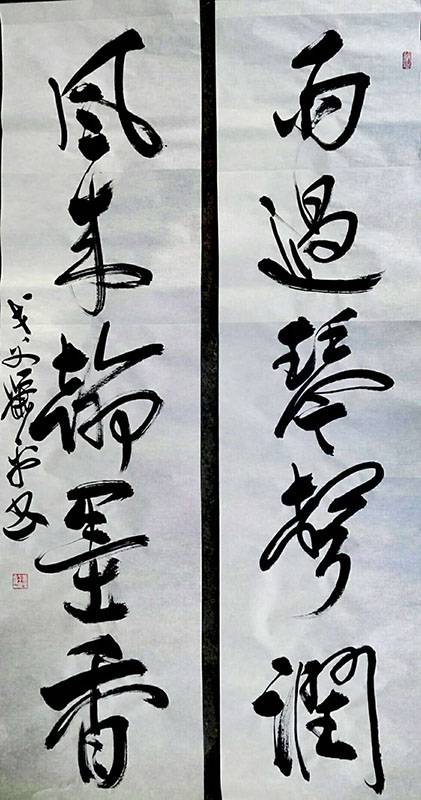 雨過琴聲潤
風來翰墨香